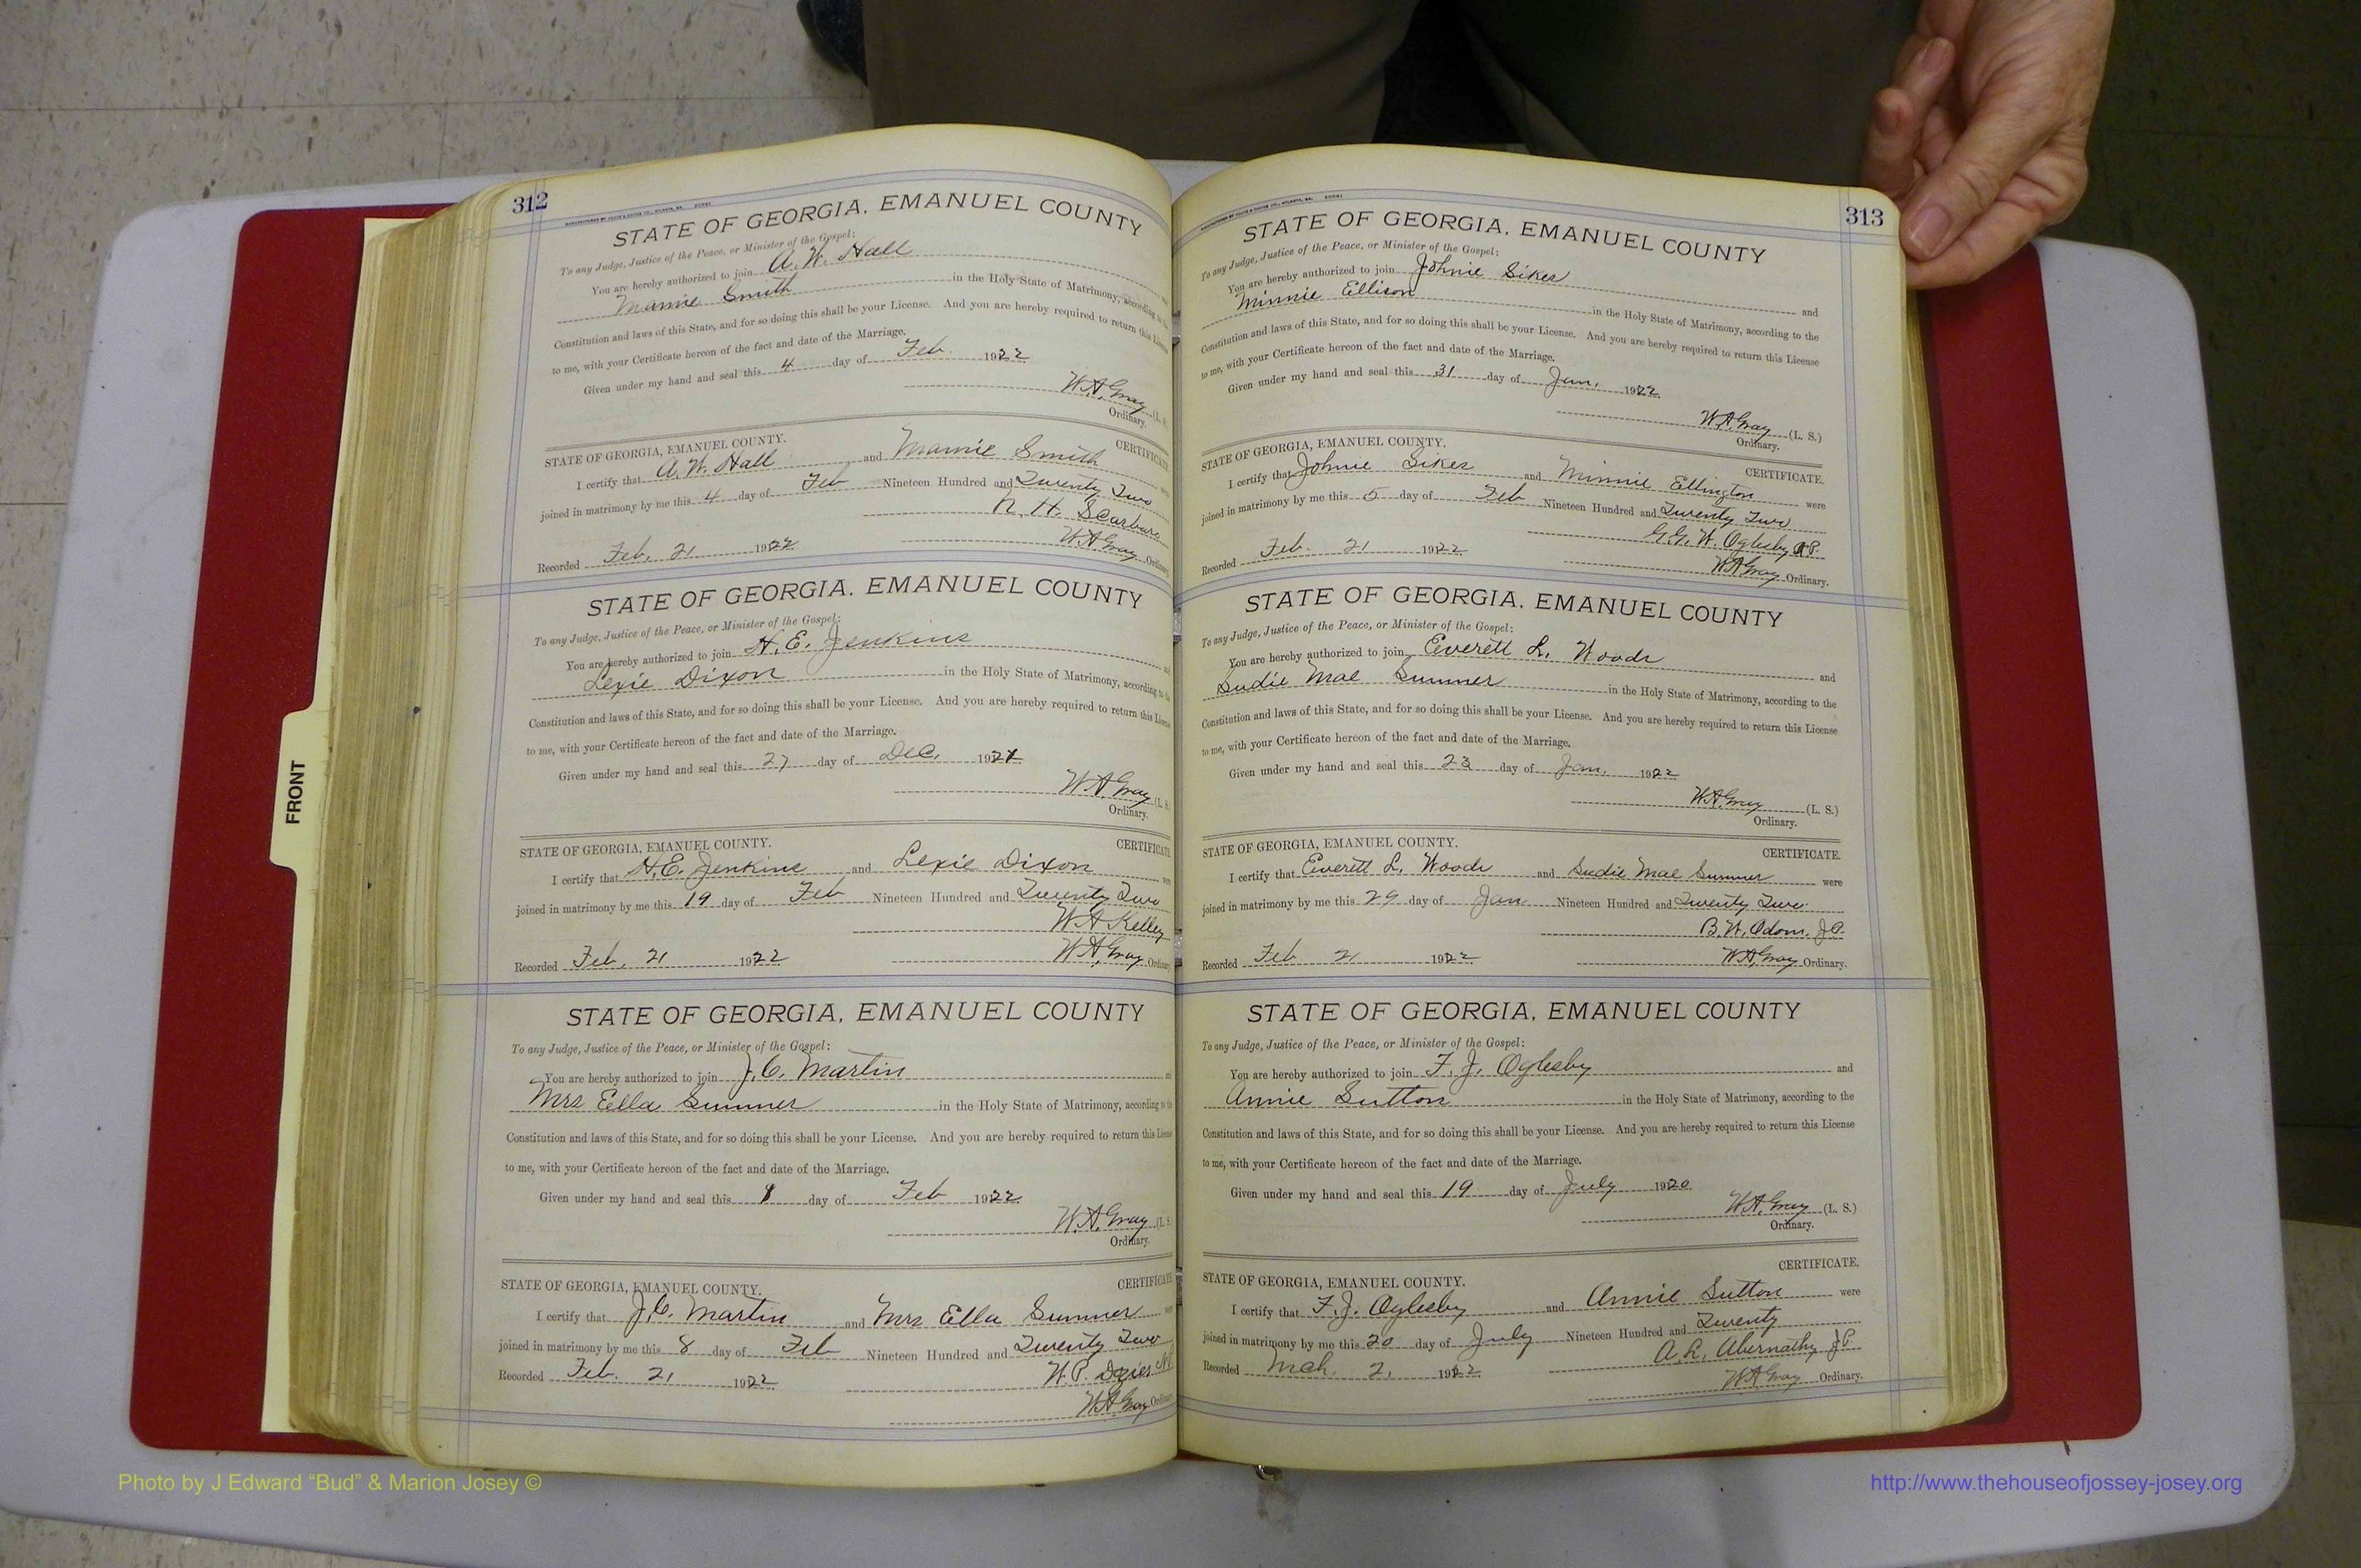 312
STATE OF GEORGIA, EMANUEL COUNTY
To any Judge, Justice of the Peace, or Minister of the Gospel:
You are hereby authorized to join A. W. Hall
Mamie Smith in the Holy State of Matrimony, according to the
Constitution and laws of this State, and for so doing this shall be your License. And you are hereby required to return this License
to me, with your Certificate hereon of the fact and date of the Marriage.
Given under my hand and seal this 4 day of Feb. 1922
W.A. Gray (L. S.
Ordinary.
STATE OF GEORGIA, EMANUEL COUNTY. CERTIFICATE.
I certify that A. W. Hall and Mamie Smith
joined in matrimony by me this 4 day of Feb Nineteen Hundred and Twenty Two
N. H. Scarboro
Recorded Feb. 21 1922 W.A. Gray Ordinary
STATE OF GEORGIA, EMANUEL COUNTY
To any Judge, Justice of the Peace, or Minister of the Gospel:
You are hereby authorized to join H. E. Jenkins
Lexie Dixon in the Holy State of Matrimony, according to the
Constitution and laws of this State, and for so doing this shall be your License. And you are hereby required to return this License
to me, with your Certificate hereon of the fact and date of the Marriage.
Given under my hand and seal this 27 day of Dec. 1921
W.A. Gray (L. S.
Ordinary.
STATE OF GEORGIA, EMANUEL COUNTY. CERTIFICATE
I certify that H. E. Jenkins and Lexie Dixon
joined in matrimony by me this 19 day of Feb Nineteen Hundred and Twenty Two
W A Kelley
Recorded Feb. 21 1922 W.A. Gray Ordinary
STATE OF GEORGIA, EMANUEL COUNTY
To any Judge, Justice of the Peace, or Minister of the Gospel:
You are hereby authorized to join J. C. Martin
Mrs Ella Sumner in the Holy State of Matrimony, according to the
Constitution and laws of this State, and for so doing this shall be your License. And you are hereby required to return this License
to me, with your Certificate hereon of the fact and date of the Marriage.
Given under my hand and seal this 8 day of Feb 1922
W.A. Gray (L. S
Ordinary.
STATE OF GEORGIA, EMANUEL COUNTY. CERTIFICATE
I certify that J. C. Martin and Mrs Ella Sumner
joined in matrimony by me this 8 day of Feb Nineteen Hundred and Twenty Two
Recorded Feb. 21 1922 W. P.
W.A. Gray Ordinary
313
STATE OF GEORGIA, EMANUEL COUNTY
To any Judge, Justice of the Peace, or Minister of the Gospel:
You are hereby authorized to join Johnie Sikes and
Minnie Ellison in the Holy State of Matrimony, according to the
Constitution and laws of this State, and for so doing this shall be your License. And you are hereby required to return this License
to me, with your Certificate hereon of the fact and date of the Marriage.
Given under my hand and seal this 31 day of Jan. 1922
W.A. Gray (L. S.)
Ordinary.
STATE OF GEORGIA, EMANUEL COUNTY. CERTIFICATE.
I certify that Johnie Sikes and Minnie Ellington were
joined in matrimony by me this 5 day of Feb Nineteen Hundred and Twenty Two
G. G. W. Oglesby J P.
Recorded Feb. 21 1922 W.A. Gray Ordinary.
STATE OF GEORGIA, EMANUEL COUNTY
To any Judge, Justice of the Peace, or Minister of the Gospel:
You are hereby authorized to join Everett L. Woods and
Sudie Mae Sumner in the Holy State of Matrimony, according to the
Constitution and laws of this State, and for so doing this shall be your License. And you are hereby required to return this License
to me, with your Certificate hereon of the fact and date of the Marriage.
Given under my hand and seal this 23 day of Jan. 1922
W.A. Gray (L. S.)
Ordinary.
STATE OF GEORGIA, EMANUEL COUNTY. CERTIFICATE.
I certify that Everett L. Woods and Sudie Mae Sumner were
joined in matrimony by me this 29 day of Jan Nineteen Hundred and Twenty Two
B. W. Odom, J.P.
Recorded Feb 21 1922 W.A. Gray Ordinary.
STATE OF GEORGIA, EMANUEL COUNTY
To any Judge, Justice of the Peace, or Minister of the Gospel:
You are hereby authorized to join F. J. Oglesby and
Annie Sutton in the Holy State of Matrimony, according to the
Constitution and laws of this State, and for so doing this shall be your License. And you are hereby required to return this License
to me, with your Certificate hereon of the fact and date of the Marriage.
Given under my hand and seal this 19 day of July 1920
W.A. Gray (L. S.)
Ordinary.
STATE OF GEORGIA, EMANUEL COUNTY. CERTIFICATE.
I certify that F. J. Oglesby and Annie Sutton were
joined in matrimony by me this 20 day of July Nineteen Hundred and Twenty
A. L. Abernathy J P.
Recorded Mch. 2, 1922 W.A. Gray Ordinary.
FRONT
Photo by J Edward “Bud” & Marion Josey ©
http://www.thehouseofjossey-josey.org